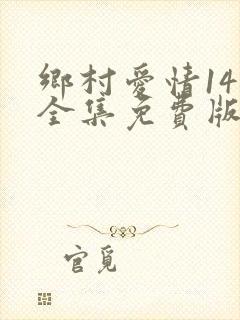 鄉村愛情14
全集免費版
官覓